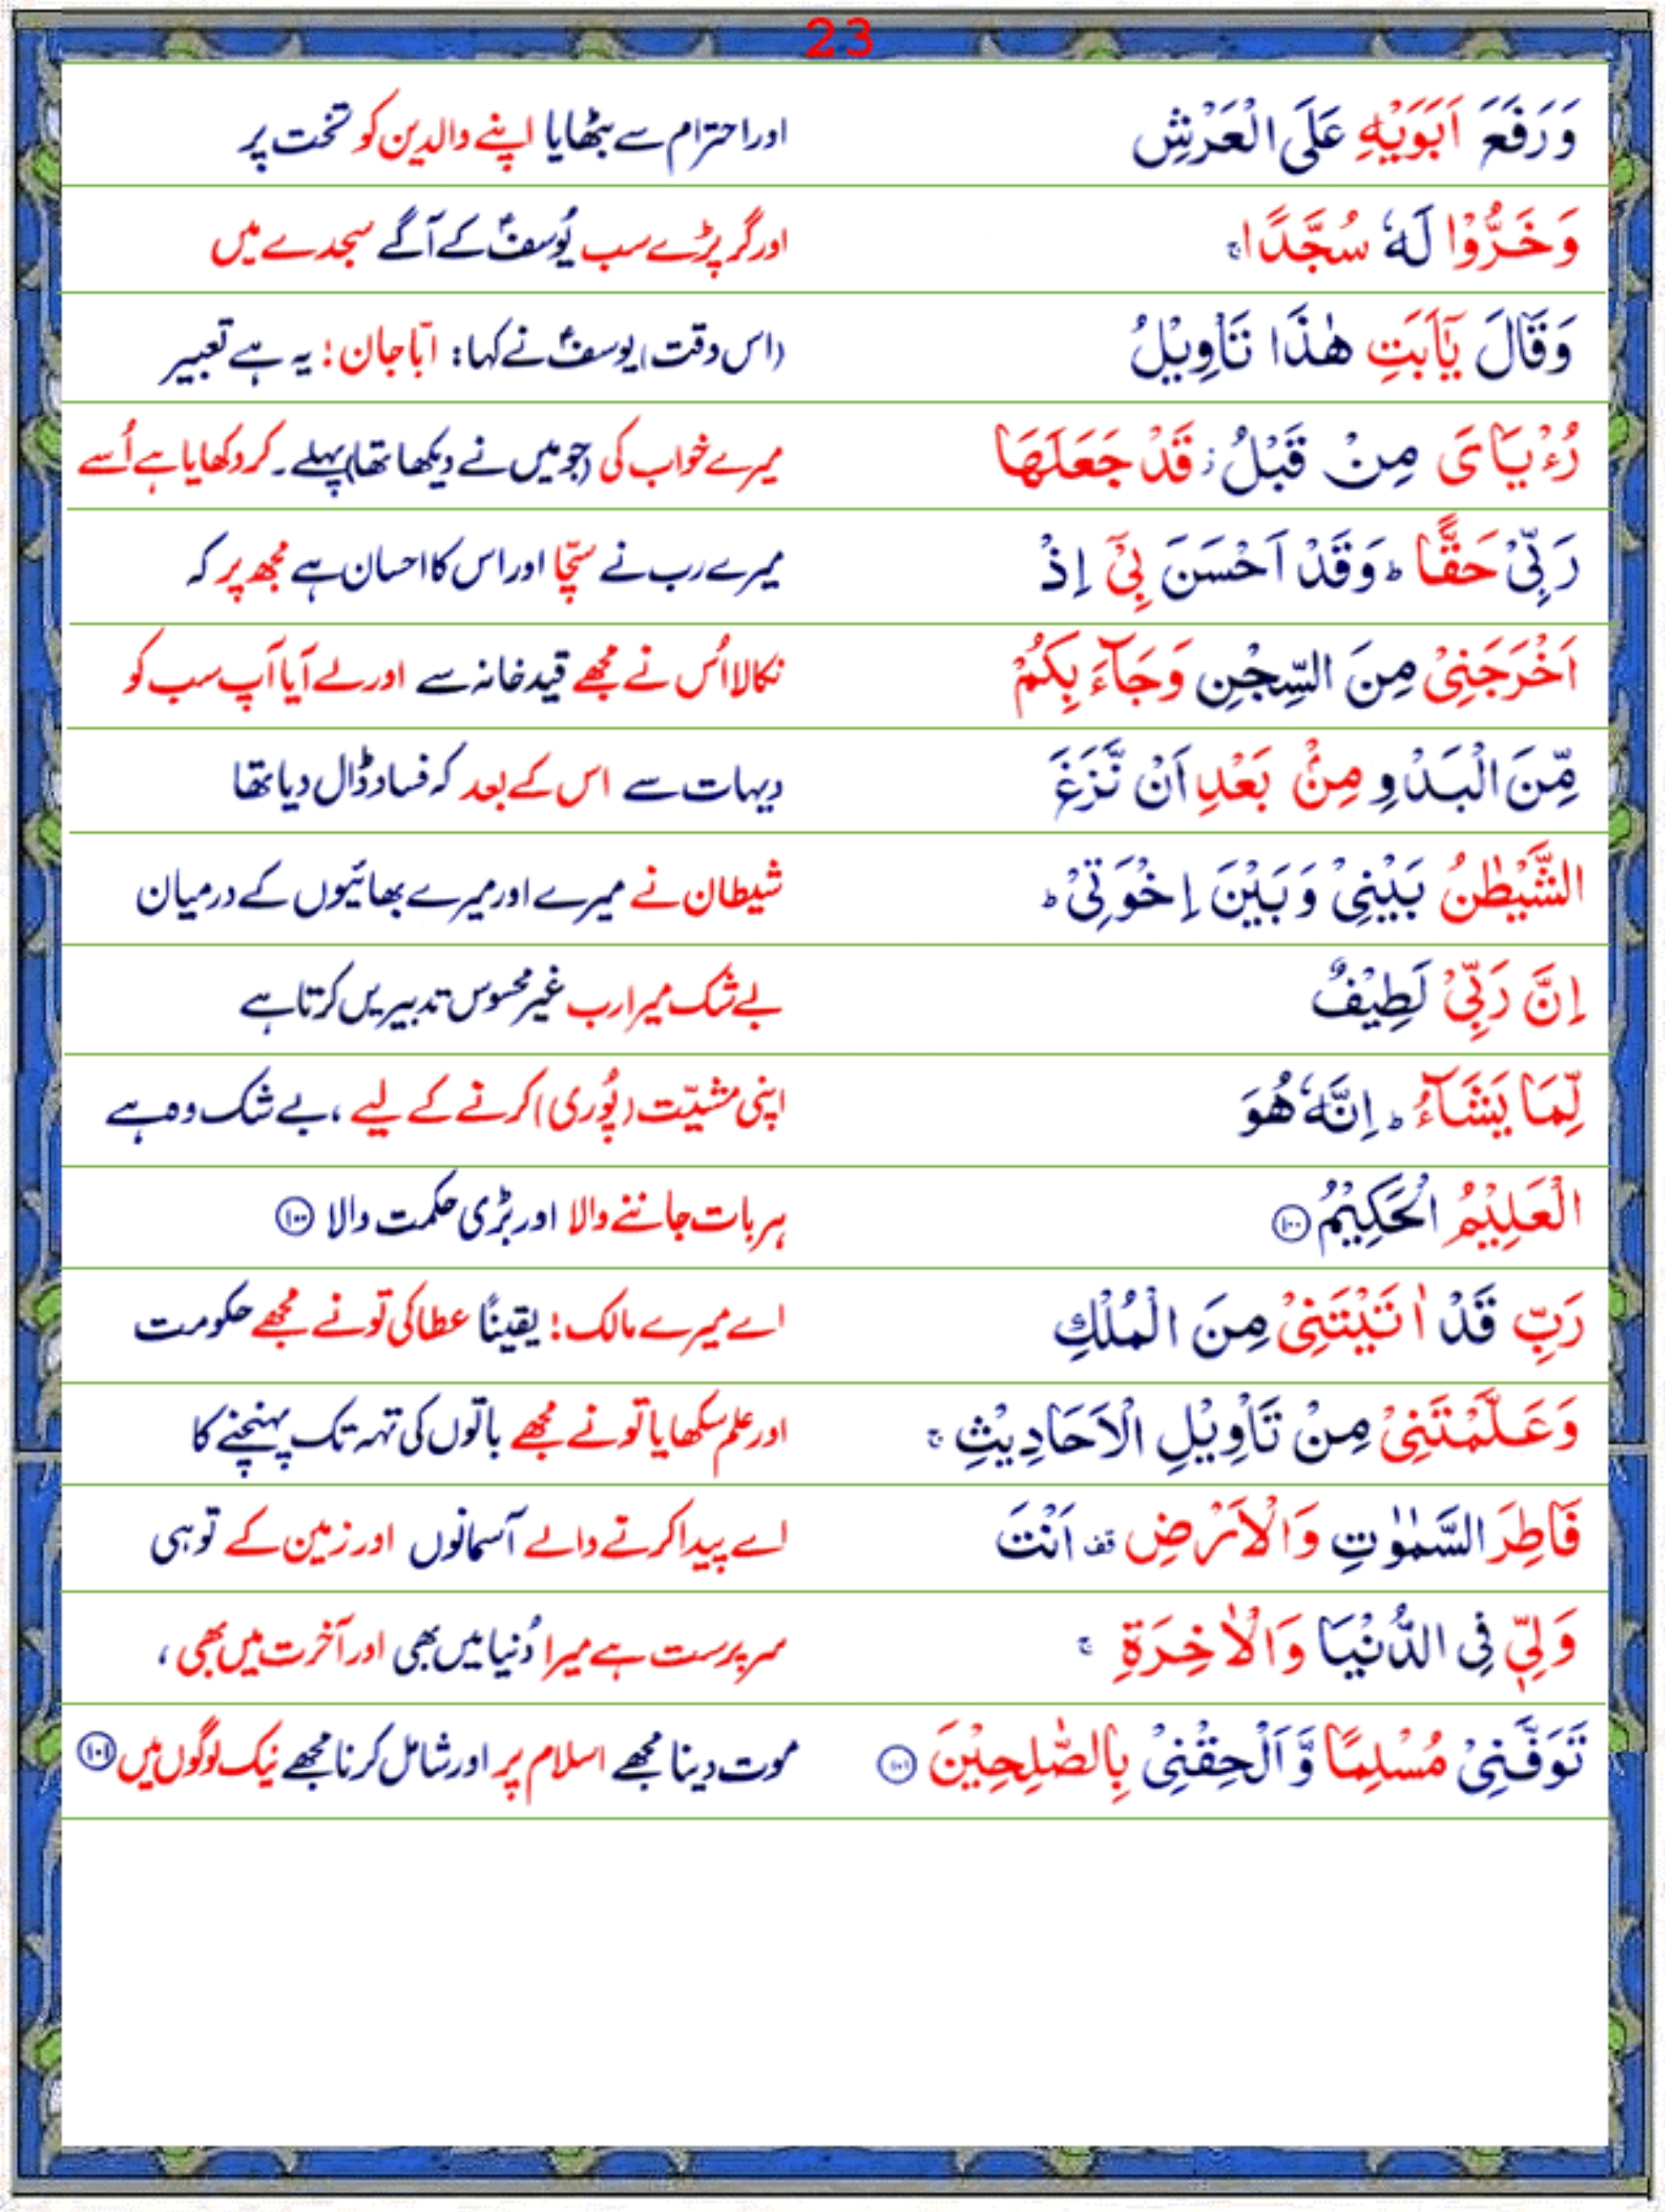 23
وَرَفَعَ اَبَوَيْهِ عَلَى الْعَرْشِ اور احترام سے بٹھایا اپنے والدین کو تخت پر
وَخَرُّوْا لَهٗ سُجَّدًا ۚ اور گر پڑے سب یُوسفؑ کے آگے سجدے میں
وَقَالَ يٰۤاَبَتِ هٰذَا تَاْوِيْلُ (اس وقت) یوسفؑ نے کہا: ابّا جان! یہ ہے تعبیر
رُءْيَايَ مِنْ قَبْلُ ؗ قَدْ جَعَلَهَا میرے خواب کی (جو میں نے دیکھا تھا) پہلے۔ کر دکھایا ہے اُسے
رَبِّيْ حَقًّا ؕ وَقَدْ اَحْسَنَ بِيْۤ اِذْ میرے رب نے سچّا اور اس کا احسان ہے مجھ پر کہ
اَخْرَجَنِيْ مِنَ السِّجْنِ وَجَآءَ بِكُمْ نکالا اُس نے مجھے قید خانہ سے اور لے آیا آپ سب کو
مِّنَ الْبَدْوِ مِنْۢ بَعْدِ اَنْ نَّزَغَ دیہات سے اس کے بعد کہ فساد ڈال دیا تھا
الشَّيْطٰنُ بَيْنِيْ وَبَيْنَ اِخْوَتِيْ ؕ شیطان نے میرے اور میرے بھائیوں کے درمیان
اِنَّ رَبِّيْ لَطِيْفٌ بے شک میرا رب غیر محسوس تدبیریں کرتا ہے
لِّمَا يَشَآءُ ؕ اِنَّهٗ هُوَ اپنی مشیّت (پُوری) کرنے کے لیے، بے شک وہ ہے
الْعَلِيْمُ الْحَكِيْمُ ۝۱۰۰ ہر بات جاننے والا اور بڑی حکمت والا ۝۱۰۰
رَبِّ قَدْ اٰتَيْتَنِيْ مِنَ الْمُلْكِ اے میرے مالک! یقیناً عطا کی تو نے مجھے حکومت
وَعَلَّمْتَنِيْ مِنْ تَاْوِيْلِ الْاَحَادِيْثِ ۚ اور علم سکھایا تو نے مجھے باتوں کی تہہ تک پہنچنے کا
فَاطِرَ السَّمٰوٰتِ وَالْاَرْضِ قف اَنْتَ اے پیدا کرنے والے آسمانوں اور زمین کے تو ہی
وَلِيّٖ فِي الدُّنْيَا وَالْاٰخِرَةِ ۚ سرپرست ہے میرا دُنیا میں بھی اور آخرت میں بھی،
تَوَفَّنِيْ مُسْلِمًا وَّاَلْحِقْنِيْ بِالصّٰلِحِيْنَ ۝۱۰۱ موت دینا مجھے اسلام پر اور شامل کرنا مجھے نیک لوگوں میں ۝۱۰۱